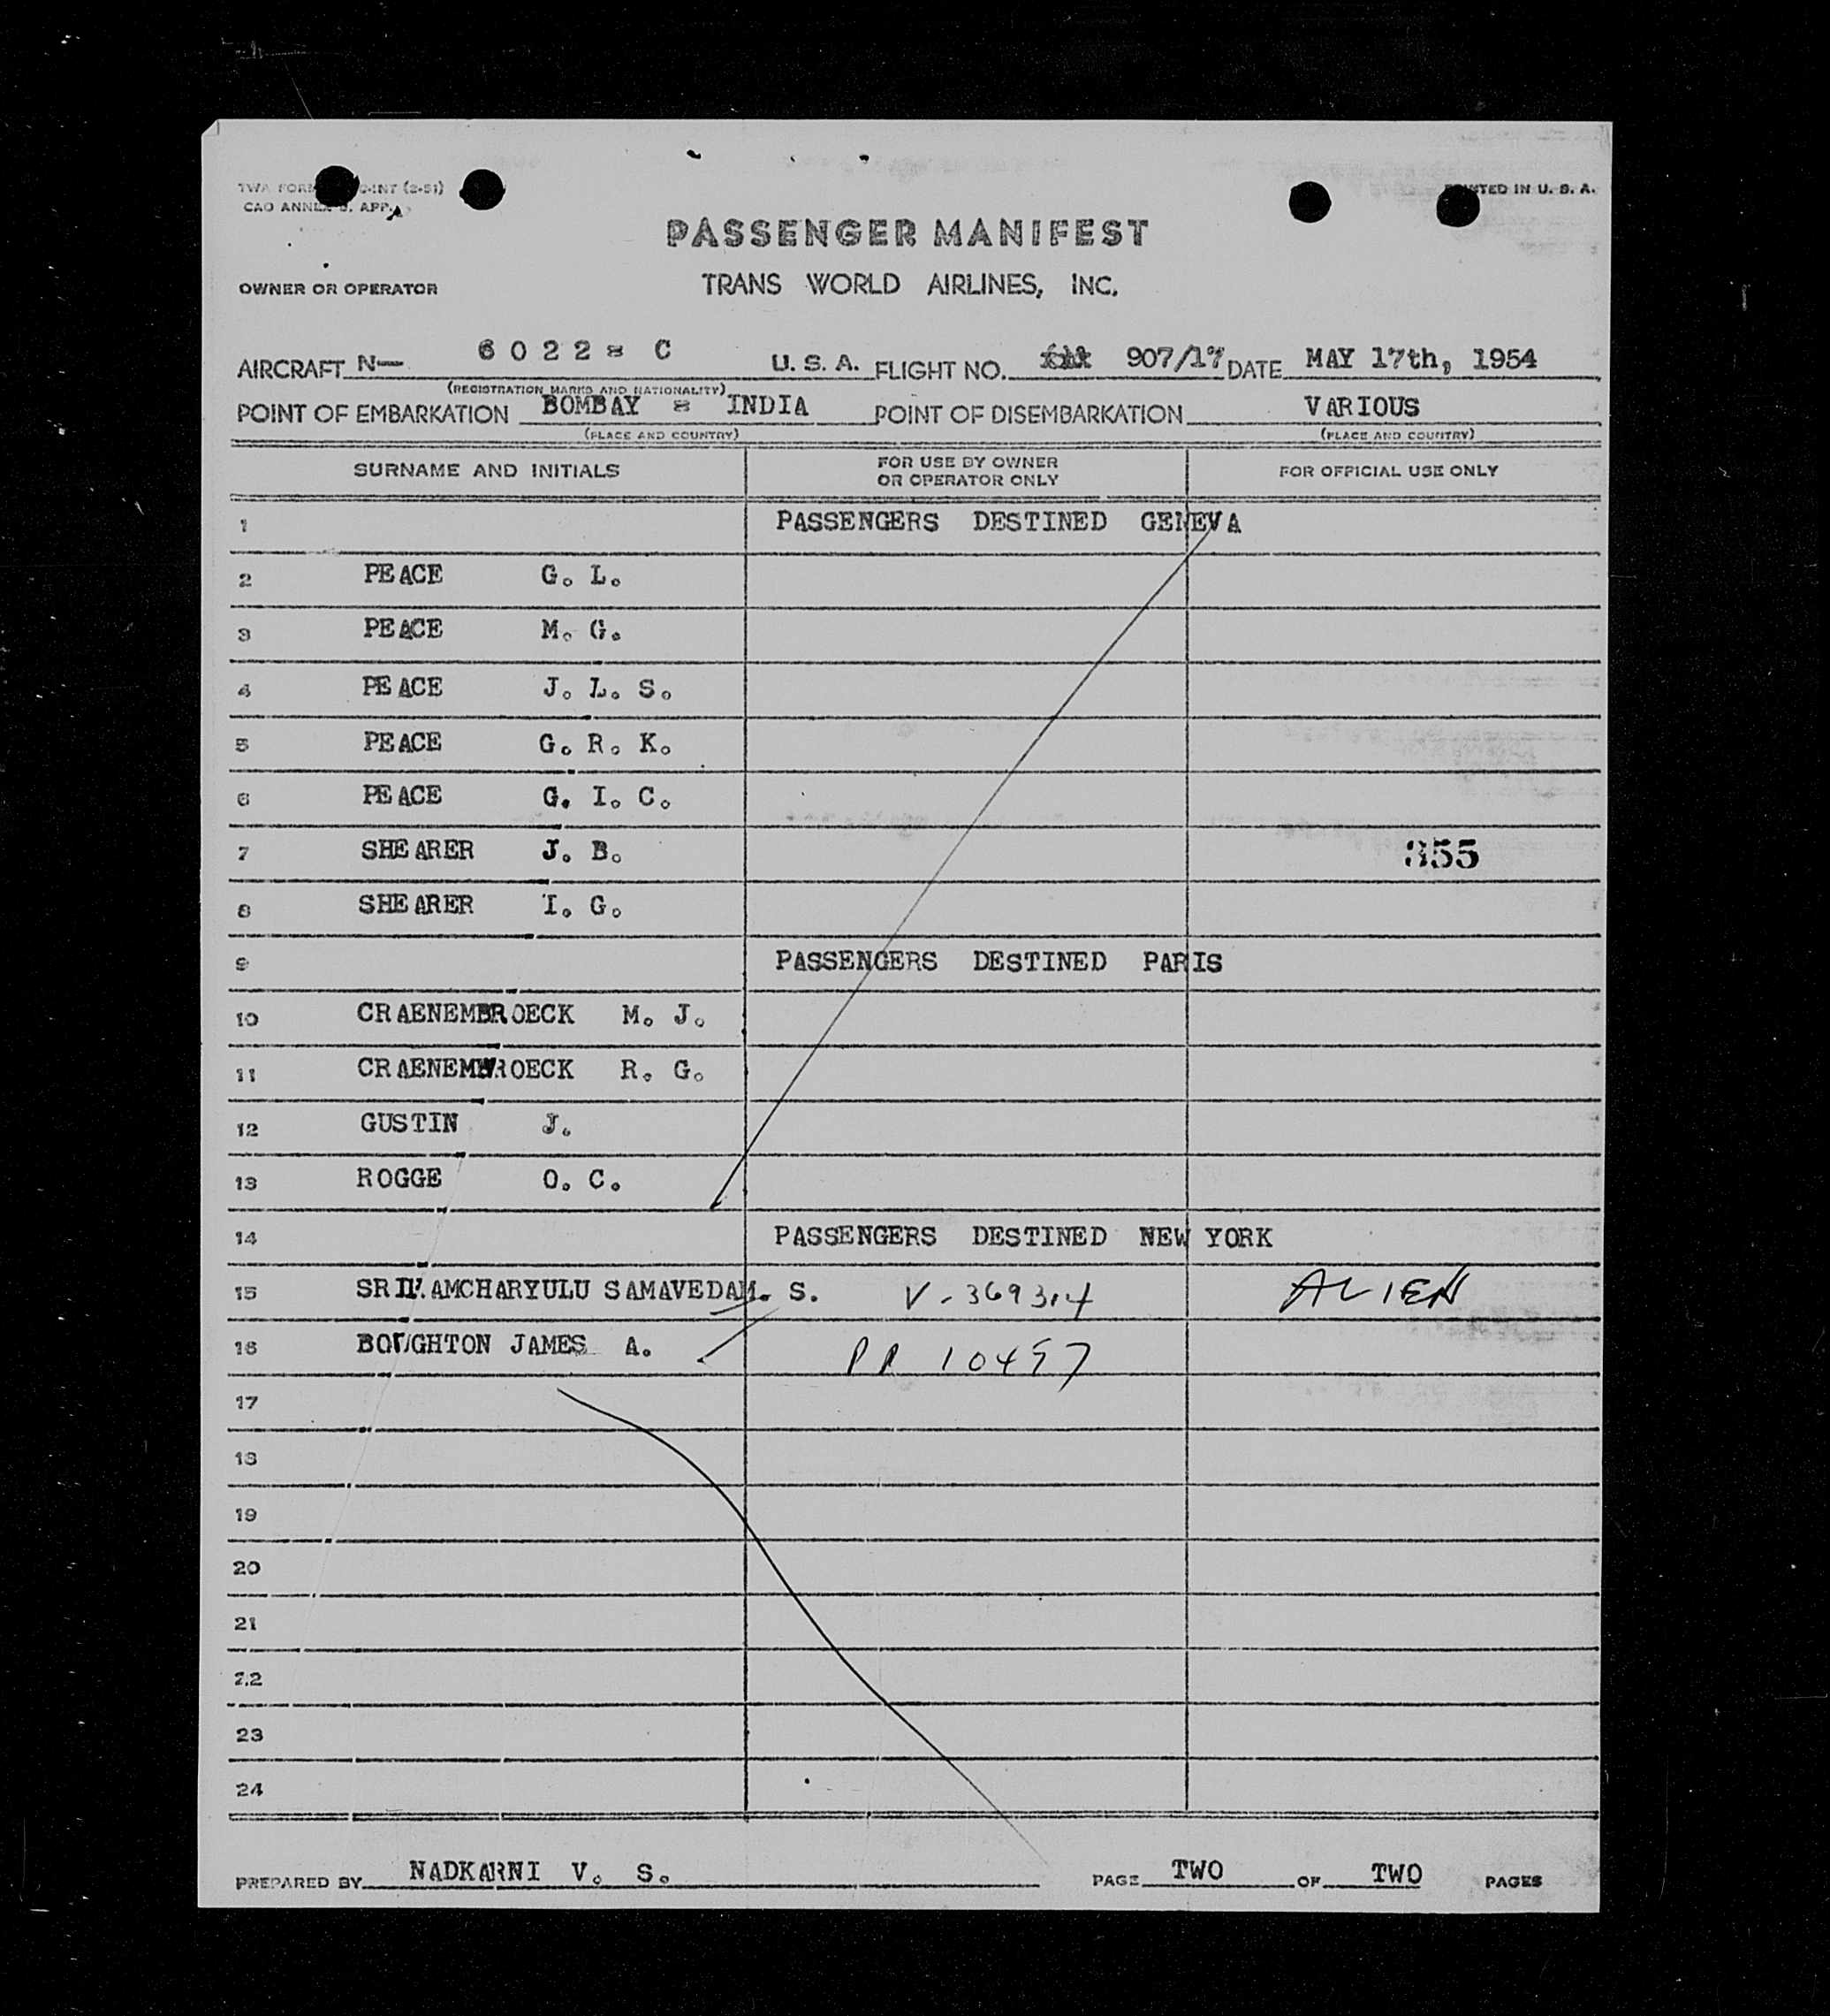 TWA FORM -INT (2-51)
CAO ANNEX 9. APP.
PRINTED IN U. S. A.
PASSENGER MANIFEST
OWNER OR OPERATOR TRANS WORLD AIRLINES, INC.
AIRCRAFT N— 6022 - C U. S. A. FLIGHT NO. 907/17 DATE MAY 17th, 1954
(REGISTRATION MARKS AND NATIONALITY)
POINT OF EMBARKATION BOMBAY - INDIA POINT OF DISEMBARKATION VARIOUS
(PLACE AND COUNTRY) (PLACE AND COUNTRY)
SURNAME AND INITIALS FOR USE BY OWNER OR OPERATOR ONLY FOR OFFICIAL USE ONLY
1 PASSENGERS DESTINED GENEVA
2 PEACE G. L.
3 PEACE M. G.
4 PEACE J. L. S.
5 PEACE G. R. K.
6 PEACE G. I. C.
7 SHEARER J. B. 355
8 SHEARER I. G.
9 PASSENGERS DESTINED PARIS
10 CRAENEMBROECK M. J.
11 R. G.
12 GUSTIN J.
13 ROGGE O. C.
14 PASSENGERS DESTINED NEW YORK
15 SAMAVEDAM. S. V-369314 ALIEN
16 BOUGHTON JAMES A. PP 10497
17
18
19
20
21
22
23
24
PREPARED BY NADKARNI V. S. PAGE TWO OF TWO PAGES